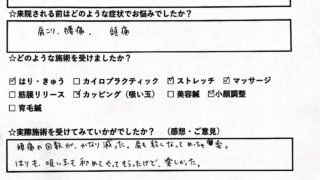 ☆来院される前はどのような症状でお悩みでしたか？
肩こり、腰痛、頭痛
☆どのような施術を受けましたか？
☑はり・きゅう □カイロプラクティック ☑ストレッチ ☑マッサージ
□筋膜リリース ☑カッピング（吸い玉） □美容鍼 ☑小顔調整
□育毛鍼
☆実際施術を受けてみていかがでしたか？（感想・ご意見）
頭痛の回数が、かなり減った。肩も軽くなってめっちゃ楽。
はりも、吸い玉も初めてやってもらったけど、楽しかった。